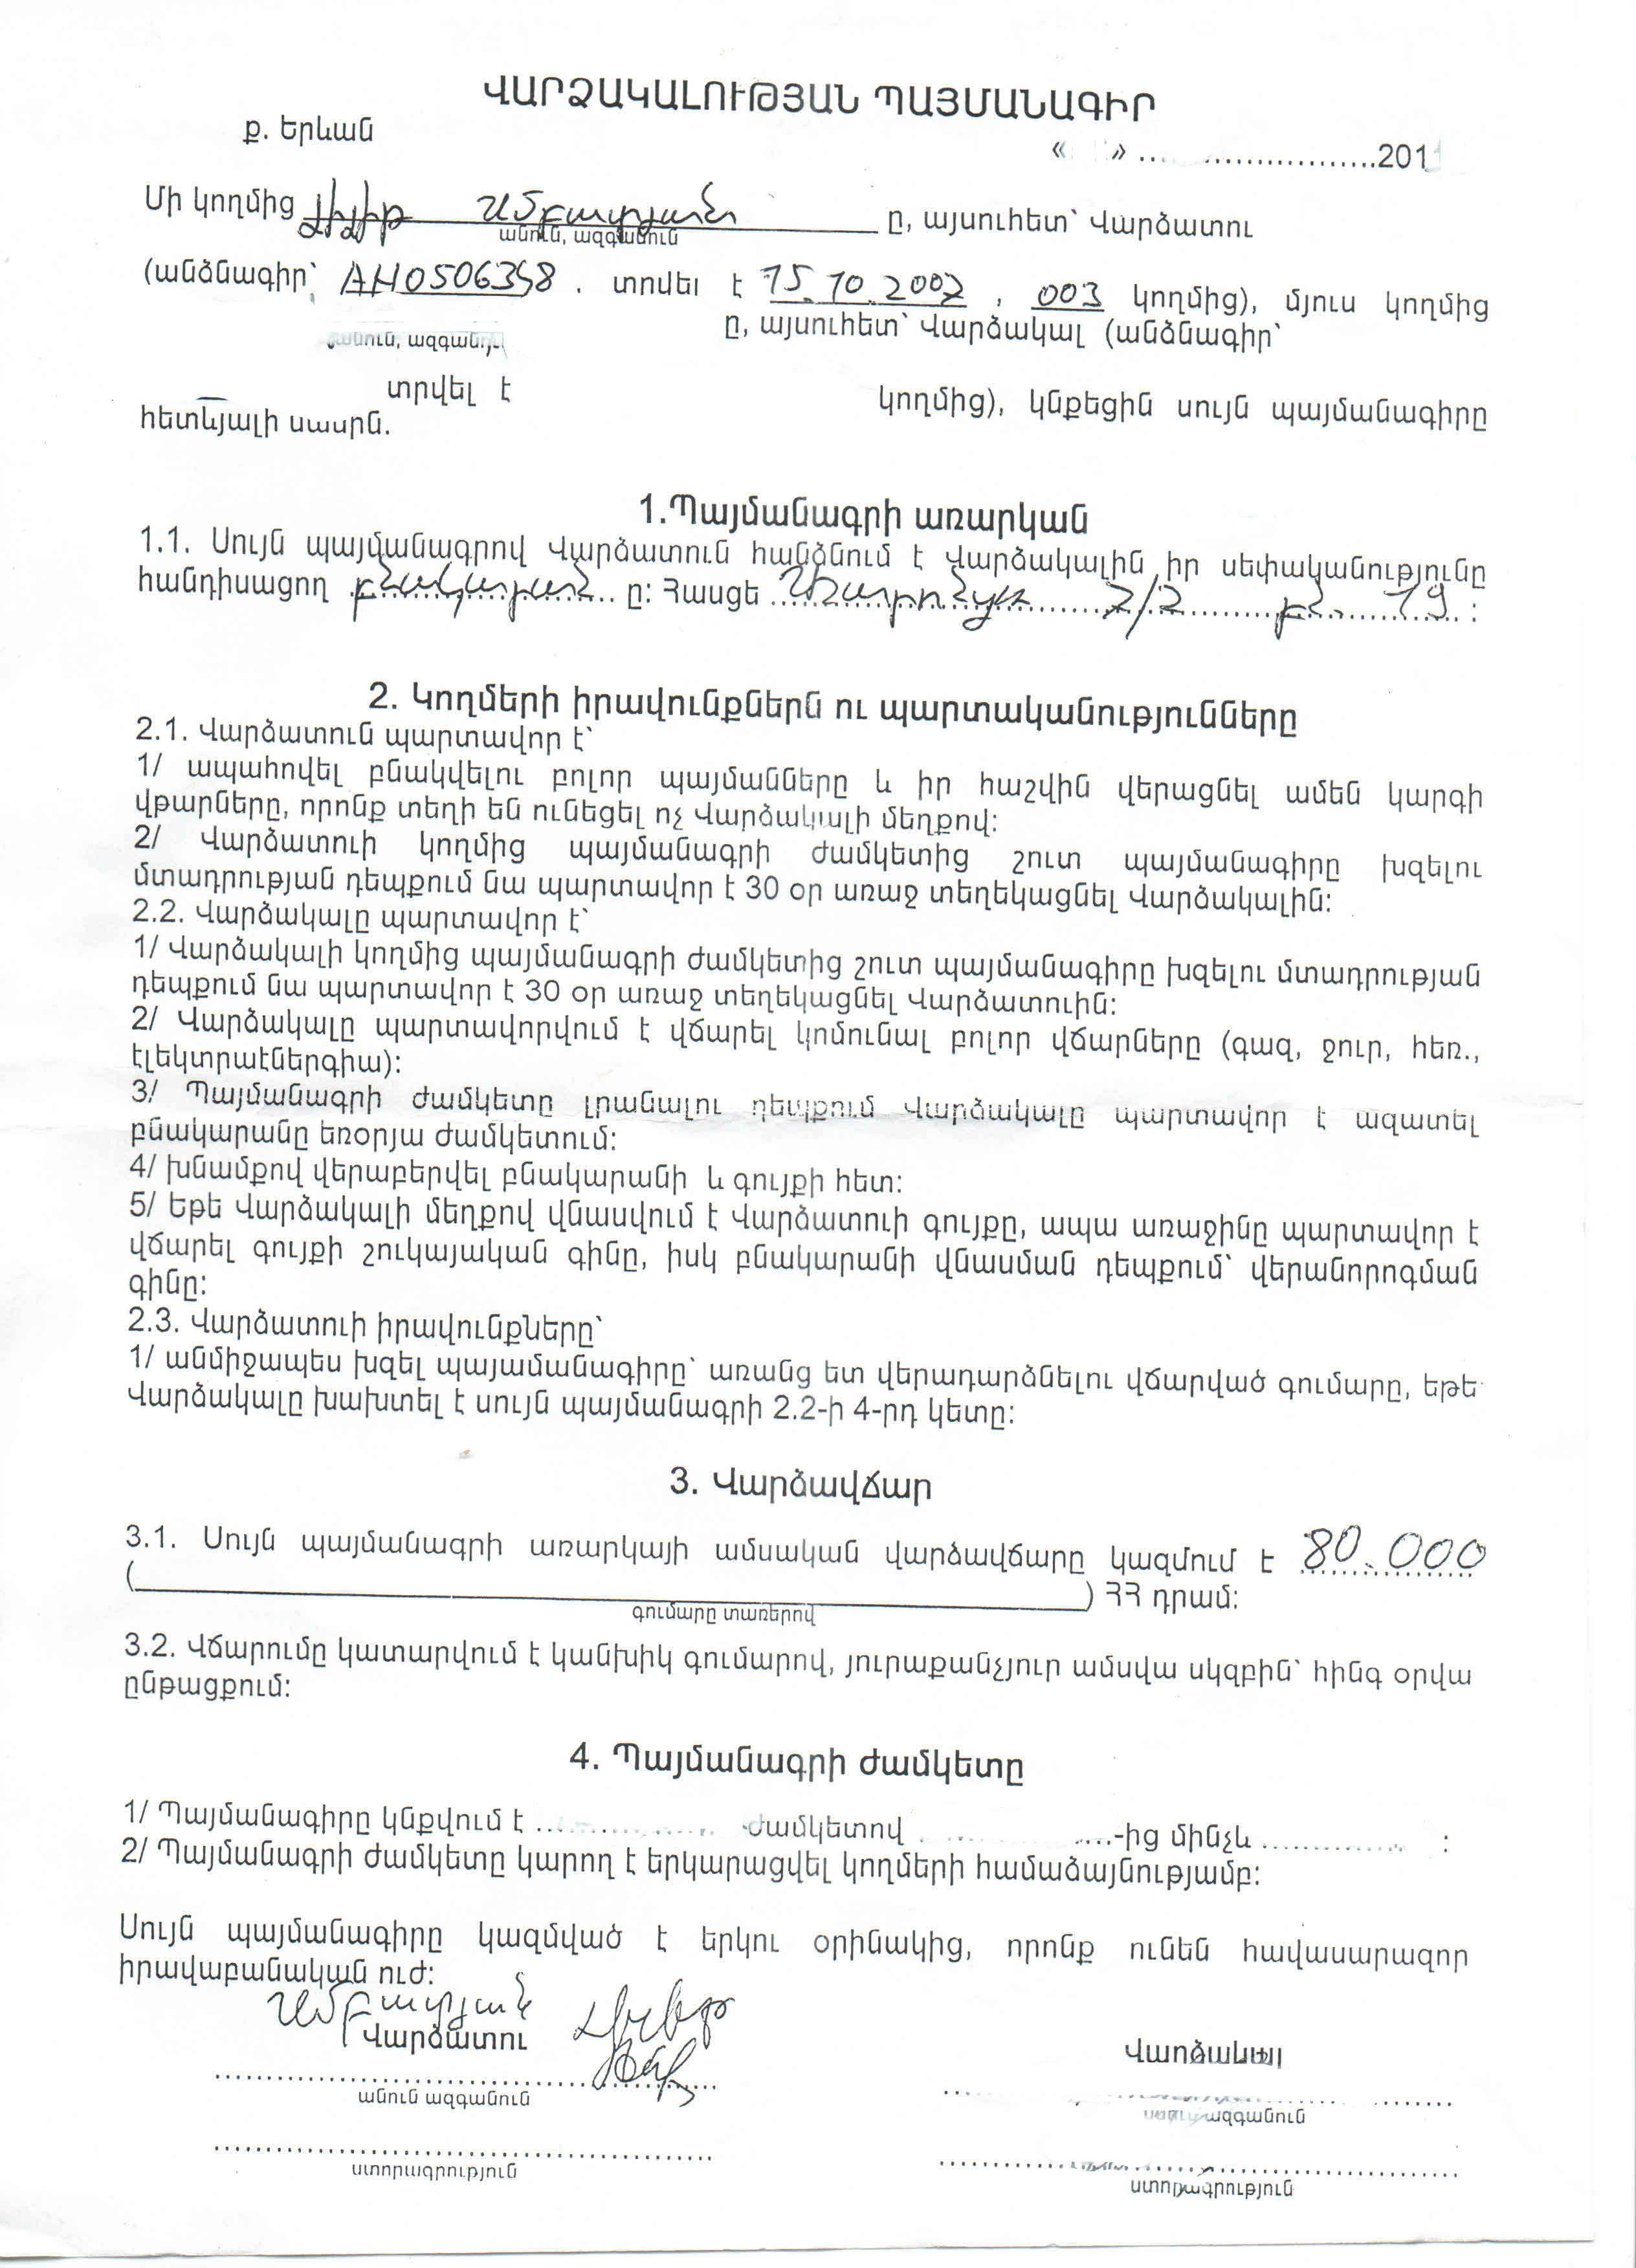 ՎԱՐՁԱԿԱԼՈՒԹՅԱՆ ՊԱՅՄԱՆԱԳԻՐ
ք. Երևան
« » ........................201
Մի կողմից Ամբատյան ը, այսուհետ՝ Վարձատու
անուն, ազգանուն
(անձնագիր՝ AH0506358 . տրվել է 15.10.2002 , 003 կողմից), մյուս կողմից
ը, այսուհետ՝ Վարձակալ (անձնագիր՝
անուն, ազգանուն
տրվել է կողմից), կնքեցին սույն պայմանագիրը
հետևյալի մասին.
1.Պայմանագրի առարկան
1.1. Սույն պայմանագրով Վարձատուն հանձնում է Վարձակալին իր սեփականությունը
հանդիսացող բնակարան ը: Հասցե 2/2 բն. 19 :
2. Կողմերի իրավունքներն ու պարտականությունները
2.1. Վարձատուն պարտավոր է՝
1/ ապահովել բնակվելու բոլոր պայմանները և իր հաշվին վերացնել ամեն կարգի
վթարները, որոնք տեղի են ունեցել ոչ Վարձակալի մեղքով:
2/ Վարձատուի կողմից պայմանագրի ժամկետից շուտ պայմանագիրը խզելու
մտադրության դեպքում նա պարտավոր է 30 օր առաջ տեղեկացնել Վարձակալին:
2.2. Վարձակալը պարտավոր է՝
1/ Վարձակալի կողմից պայմանագրի ժամկետից շուտ պայմանագիրը խզելու մտադրության
դեպքում նա պարտավոր է 30 օր առաջ տեղեկացնել Վարձատուին:
2/ Վարձակալը պարտավորվում է վճարել կոմունալ բոլոր վճարները (գազ, ջուր, հեռ.,
էլեկտրաէներգիա):
3/ Պայմանագրի ժամկետը լրանալու դեպքում Վարձակալը պարտավոր է ազատել
բնակարանը եռօրյա ժամկետում:
4/ խնամքով վերաբերվել բնակարանի և գույքի հետ:
5/ Եթե Վարձակալի մեղքով վնասվում է Վարձատուի գույքը, ապա առաջինը պարտավոր է
վճարել գույքի շուկայական գինը, իսկ բնակարանի վնասման դեպքում՝ վերանորոգման
գինը:
2.3. Վարձատուի իրավունքները՝
1/ անմիջապես խզել պայամանագիրը՝ առանց ետ վերադարձնելու վճարված գումարը, եթե
Վարձակալը խախտել է սույն պայմանագրի 2.2-ի 4-րդ կետը:
3. Վարձավճար
3.1. Սույն պայմանագրի առարկայի ամսական վարձավճարը կազմում է 80.000
( ) ՀՀ դրամ:
գումարը տառերով
3.2. Վճարումը կատարվում է կանխիկ գումարով, յուրաքանչյուր ամսվա սկզբին՝ հինգ օրվա
ընթացքում:
4. Պայմանագրի ժամկետը
1/ Պայմանագիրը կնքվում է ... ժամկետով ...-ից մինչև ............... :
2/ Պայմանագրի ժամկետը կարող է երկարացվել կողմերի համաձայնությամբ:
Սույն պայմանագիրը կազմված է երկու օրինակից, որոնք ունեն հավասարազոր
իրավաբանական ուժ:
Ամբատյան
Վարձատու Վարձակալ
անուն ազգանուն անուն ազգանուն
ստորագրություն ստորագրություն